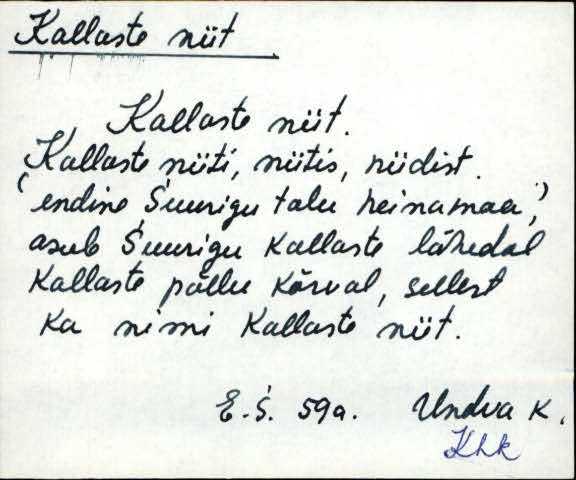 Kallaste niit
Kallaste niit.
Kallaste niiti, niitis, niidist.
(endine Suurigu talu heinamaa),
asub Suurigu Kallaste lähedal
Kallaste põllu kõrval, sellest
ka nimi Kallaste niit.
E.S. 59a. Undva k.
Khk